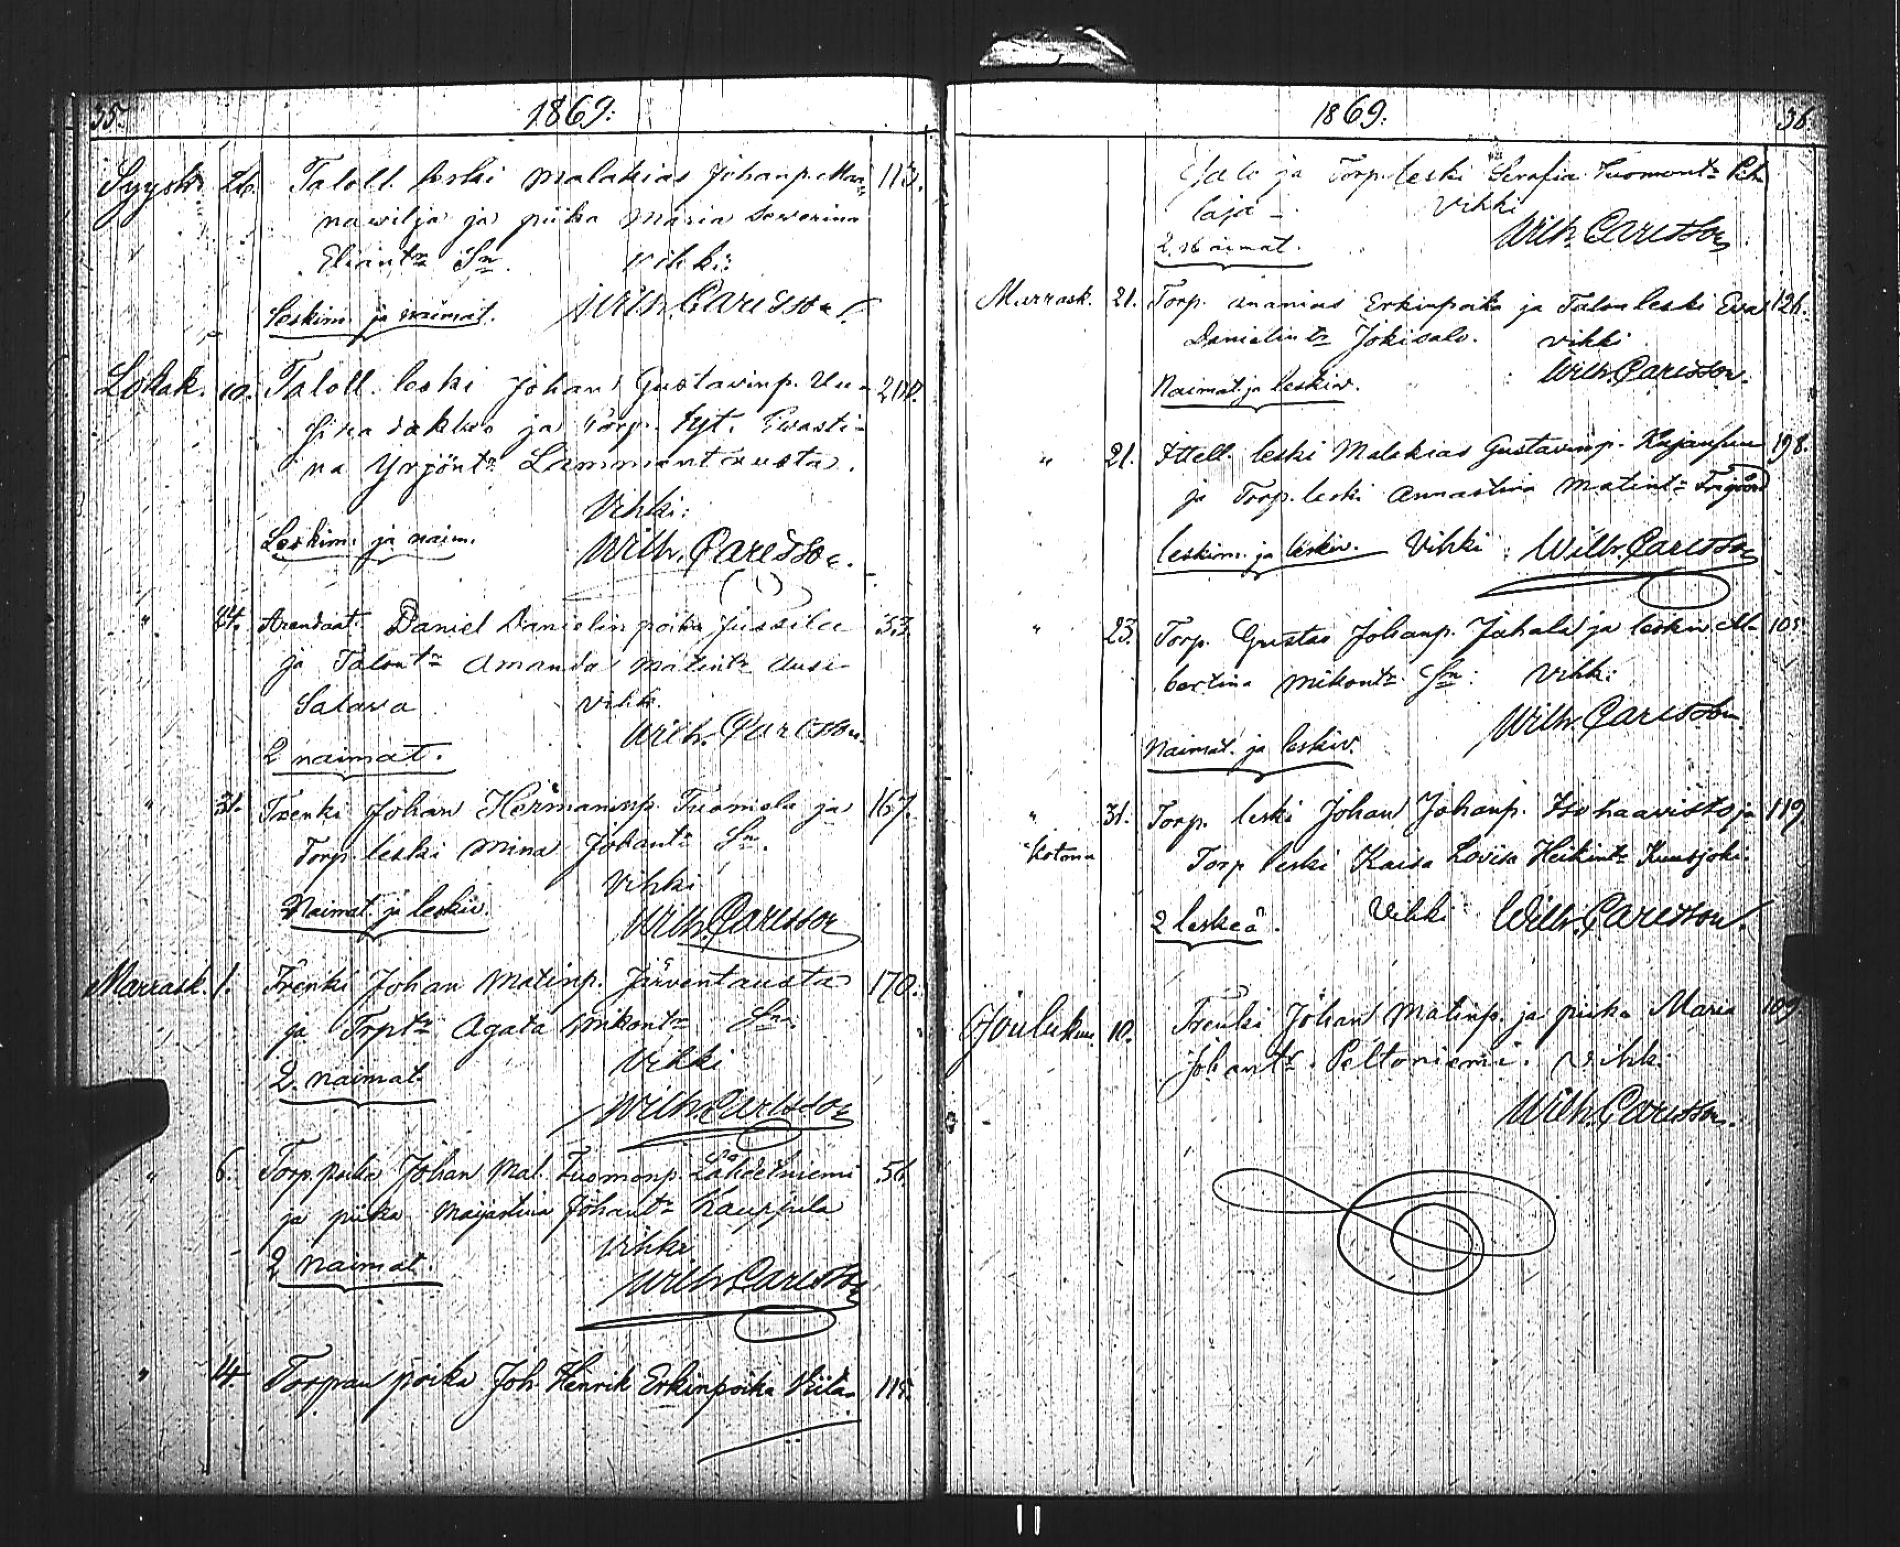 35. 1869:
Syysk. 26. Taloll. leski Malakias Johanp. Man- 113.
nawilja ja piika Maria Severina
Eliantr Sm. Vihki:
Leskim. ja naimat. Wilh. Carlsson.
Lokak. 10. Taloll. leski Johan Gustavinp. Uu- 200.
ja Torp. tyt. Evasti-
na Yrjöntr Lammintausta.
Vihki:
Leskim. ja naim. Wilh. Carlsson.
" 24. Arendaat. Daniel Danielinpoika Jussila 33.
ja Talontr Amanda Matintr Uusi
Satawa Vihk.
Wilh. Carlsson.
2 naimat.
" 31. Trenki Johan Hermaninp. Tuomola ja 167.
Torp. leski Mina Johantr Sm.
Vihki
Naimat. ja leskiv. Wilh. Carlsson
Marrask. 1. Trenki Johan Matinp. Järventausta 170.
ja Torptr Agata Mikontr Sm.
Vihki
2 naimat.
Wilh. Carlsson
" 6. Torp. poika Johan Mal. Tuomonp. Lähdetniemi 56.
ja piika Maijastina Johantr Kauppila
Vihki
2 naimat.
Wilh. Carlsson
" 14. Torpan poika Joh. Henrik Erkinpoika Viita- 115.
1869. 36.
ja Torp. leski Serafia Tuomontr Pih-
laja - Vihki
2 naimat. Wilh. Carlsson
Marrask. 21. Torp. Ananias Erkinpoika ja Talon leski Eva 126.
Danielintr Jokisalo. Vihki
Wilh. Carlsson.
Naimat. ja leskiv.
" 21. Ittell. leski Malakias Gustavinp. 198.
ja Torp. leski Annastina Matintr
leskim. ja leskiv. Vihki: Wilh. Carlsson
" 23. Torp. Gustav Johanp. Jahala ja leskiv. Al- 105.
bertina Mikontr Sm: Vihk:
Wilh. Carlsson
Naimat. ja leskiv.
" 31. Torp. leski Johan Johanp. Isohaavisto ja 119
Kotona Torp leski Kaisa Lovisa Heikintr Kuusjoki.
2 leskeä. Vihki Wilh. Carlsson.
Jouluk. 10. Trenki Johan Matinp. ja piika Maria 109
Johantr. Peltoniemi. Vihk.
Wilh. Carlsson.
11